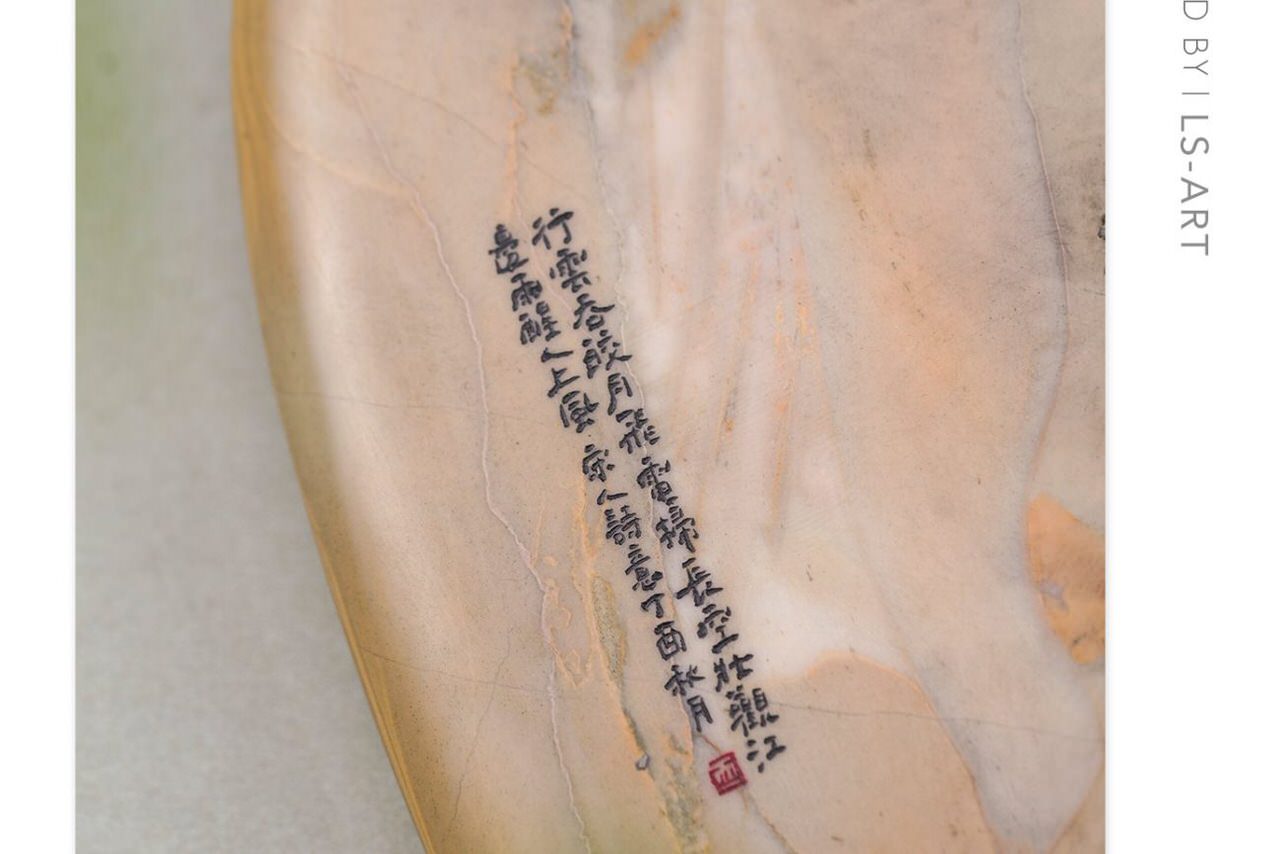 行雲吞皎月飛電掃長空壯觀江
邊雨醒人上風 宋人詩意丁酉秋月
D BY | LS-ART